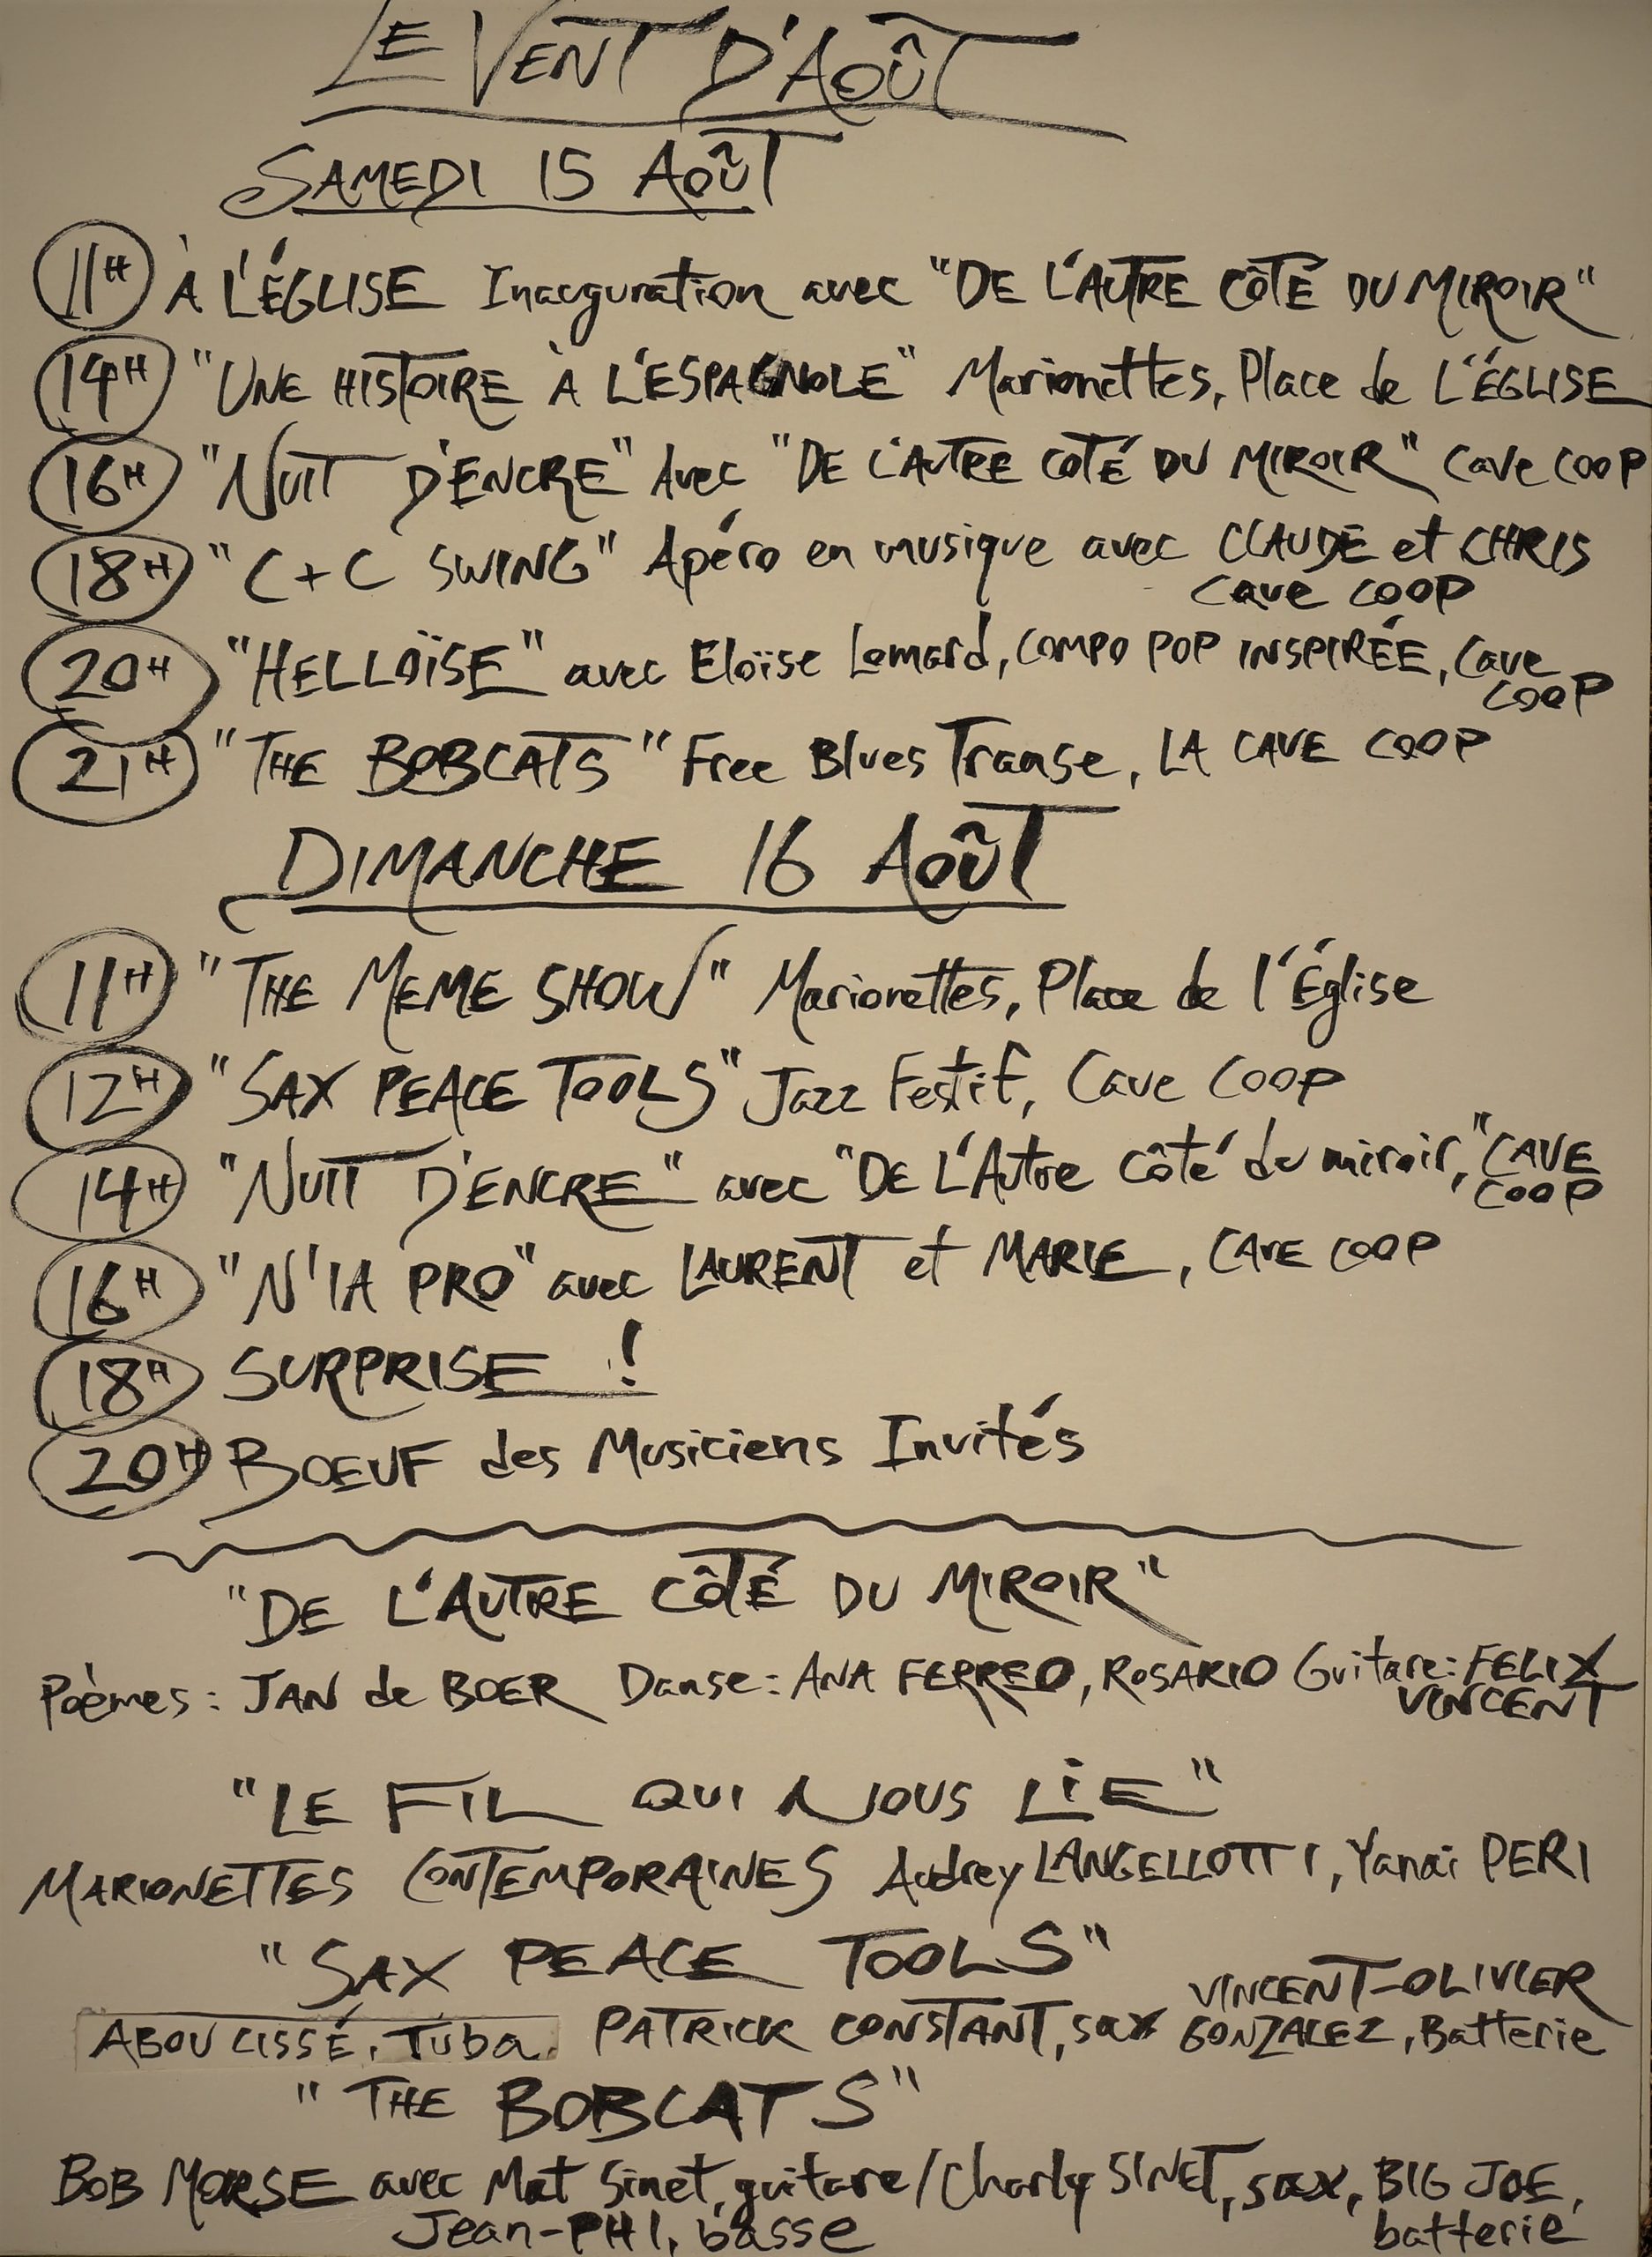 LE VENT D'AOÛT
SAMEDI 15 AOÛT
11H À L'ÉGLISE Inauguration avec "DE L'AUTRE CÔTÉ DU MIROIR"
14H "UNE HISTOIRE À L'ESPAGNOLE" Marionettes, Place de L'ÉGLISE
16H "NUIT D'ENCRE" Avec "DE L'AUTRE COTÉ DU MIROIR" Cave COOP
18H "C+C SWING" Apéro en musique avec CLAUDE et CHRIS
Cave COOP
20H "HELLOÏSE" avec Eloïse Lomard, COMPO POP INSPIRÉE, Cave
COOP
21H "THE BOBCATS" Free Blues Transe, LA CAVE COOP
DIMANCHE 16 AOÛT
11H "THE MEME SHOW" Marionettes, Place de l'Église
12H "SAX PEACE TOOLS" Jazz Festif, Cave COOP
14H "NUIT D'ENCRE" avec "DE L'Autre Côté du miroir," CAVE
COOP
16H "N'IA PRO" avec LAURENT et MARIE, CAVE COOP
18H SURPRISE !
20H BOEUF des Musiciens Invités
"DE L'AUTRE CÔTÉ DU MIROIR"
Poèmes : JAN de BOER Danse : ANA FERREO, ROSARIO Guitare : FELIX
VINCENT
"LE FIL QUI NOUS LIE"
MARIONETTES CONTEMPORAINES Audrey LANGELLOTTI, Yanaï PERI
"SAX PEACE TOOLS"
VINCENT-OLIVIER
ABOU CISSÉ, Tuba. PATRICK CONSTANT, sax GONZALEZ, Batterie
"THE BOBCATS"
BOB MORSE avec Mat Sinet, guitare / Charly SINET, sax, BIG JOE,
Jean-PHI, basse batterie